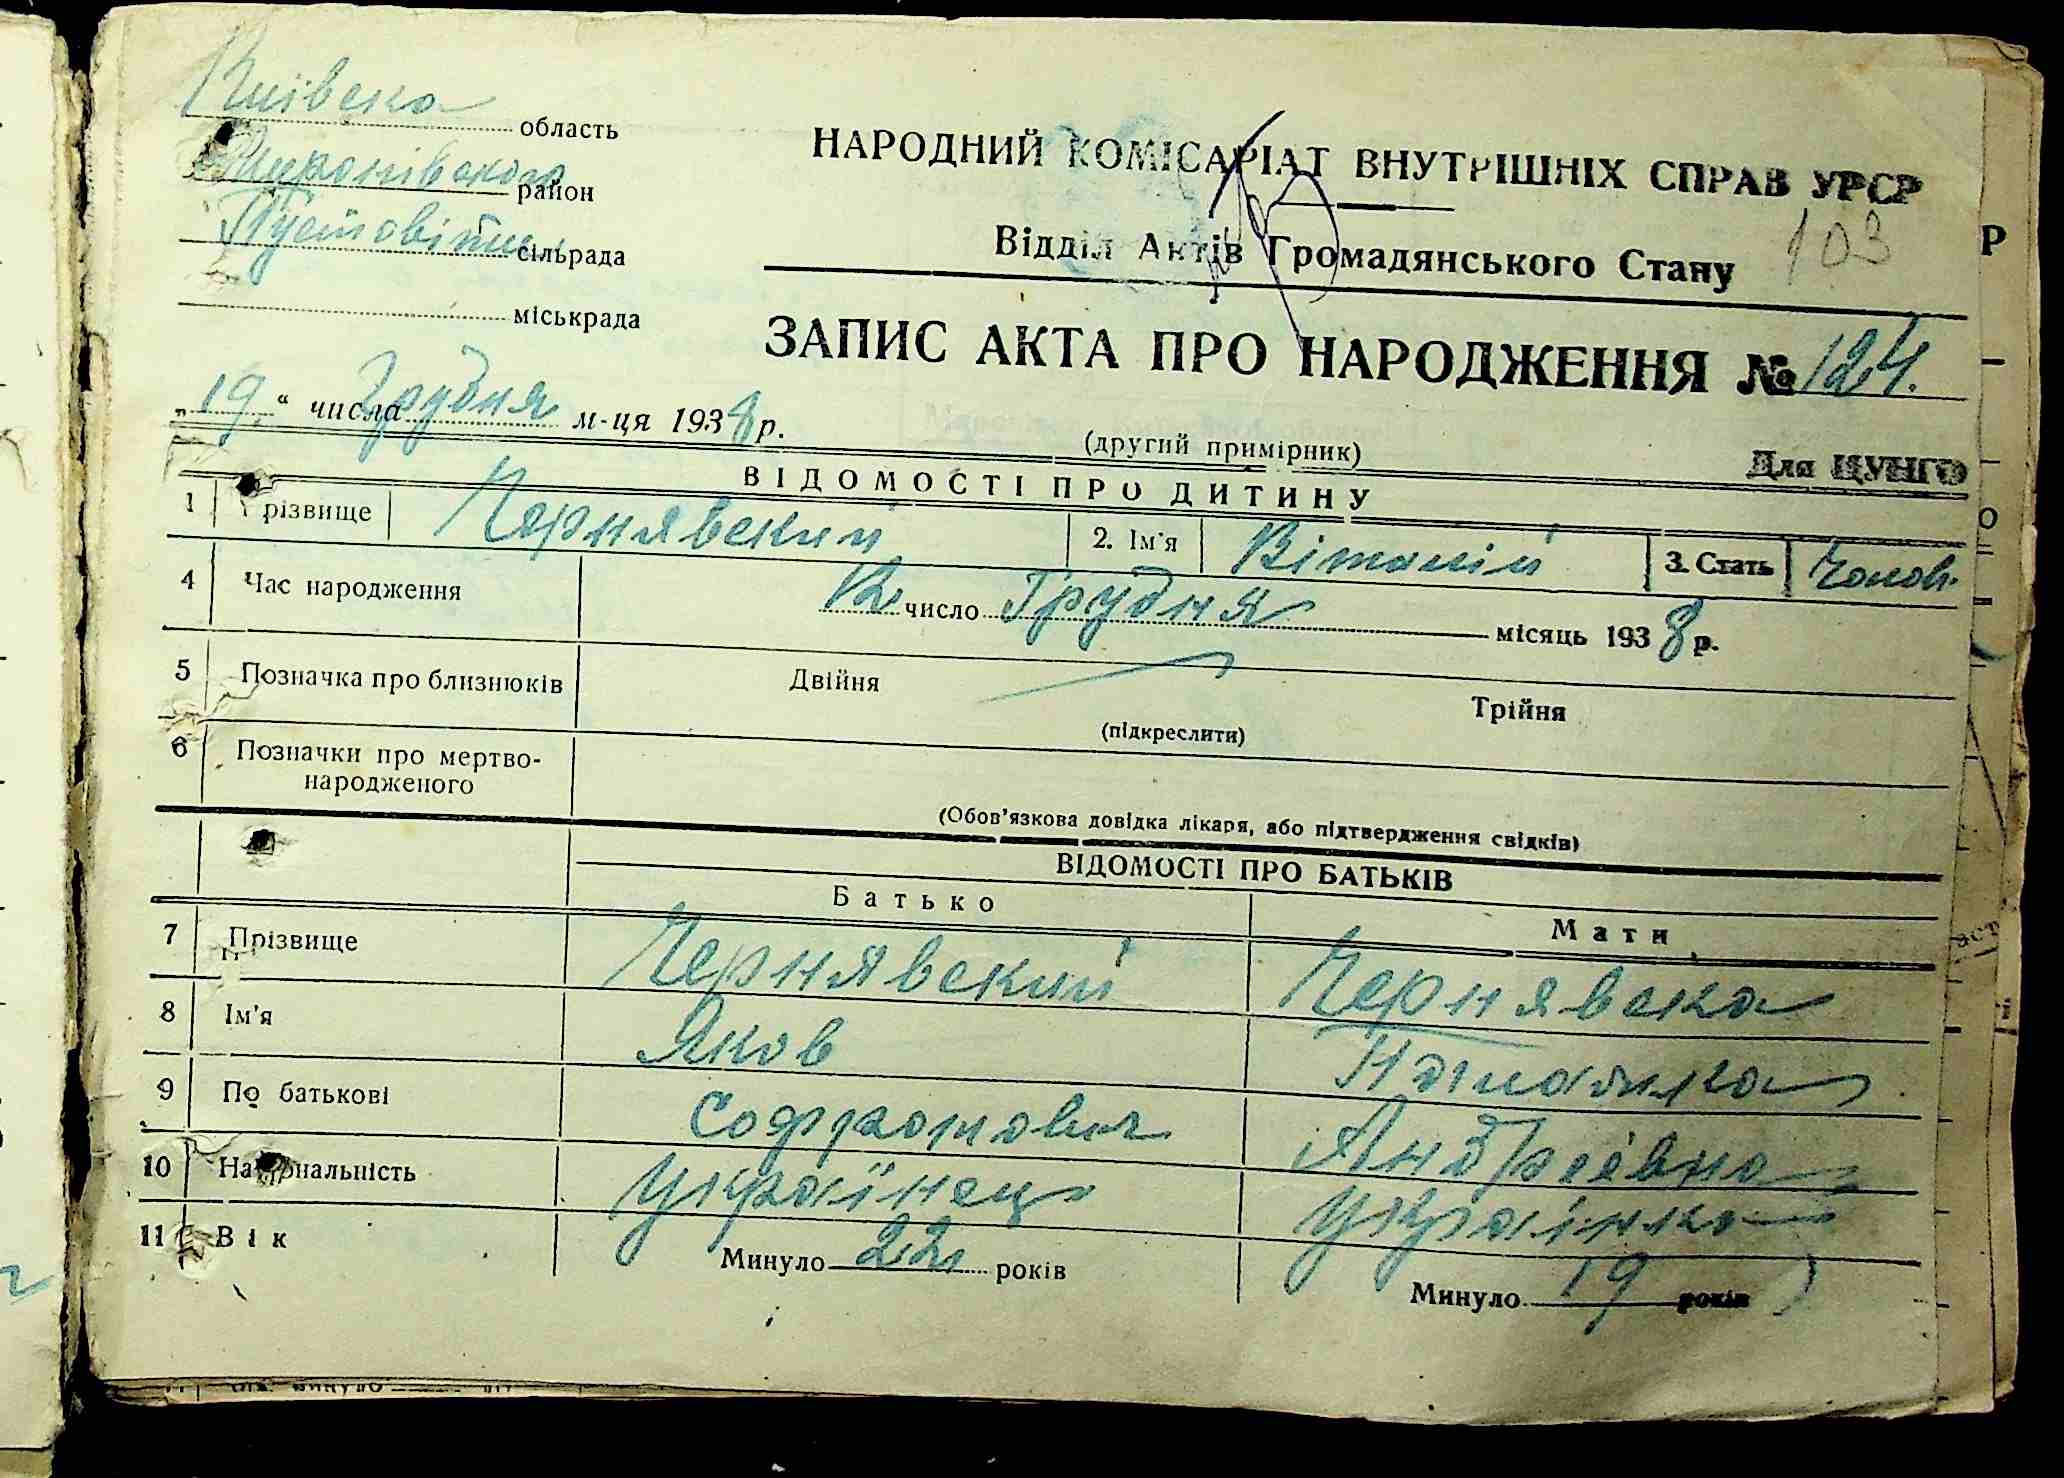 Київська область
Миронівського район
Пустовіти сільрада
міськрада
НАРОДНИЙ КОМІСАРІАТ ВНУТРІШНІХ СПРАВ УРСР
Відділ Актів Громадянського Стану
103
ЗАПИС АКТА ПРО НАРОДЖЕННЯ № 124.
„19“ числа Грудня м-ця 1938 р.
(другий примірник)
Для ЦУНГО
ВІДОМОСТІ ПРО ДИТИНУ
1 Прізвище Чернявский 2. Ім'я Віталій 3. Стать Чолов.
4 Час народження 12 число Грудня місяць 1938 р.
5 Позначка про близнюків Двійня Трійня
(підкреслити)
6 Позначки про мертво-
народженого
(Обов'язкова довідка лікаря, або підтвердження свідків)
ВІДОМОСТІ ПРО БАТЬКІВ
Батько Мати
7 Прізвище Чернявский Чернявска
8 Ім'я Яков Наталка
9 По батькові Софронович Андреівна
10 Національність Українець Українка
11 Вік Минуло 22 років Минуло 19 років